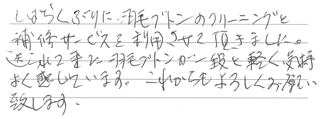 しばらくぶりに、羽毛ブトンのクリーニングと
補修サービスを利用させて頂きました。
送られて来た羽毛ブトンが一段と軽く気持
よく感じています。これからもよろしくお願い
致します。